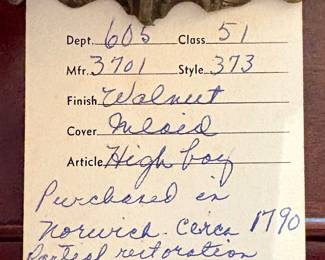 Dept. 605 Class 51
Mfr. 3701 Style 373
Finish Walnut
Cover Inlaid
Article High boy
Purchased in
Norwich. Circa 1790
Partial restoration